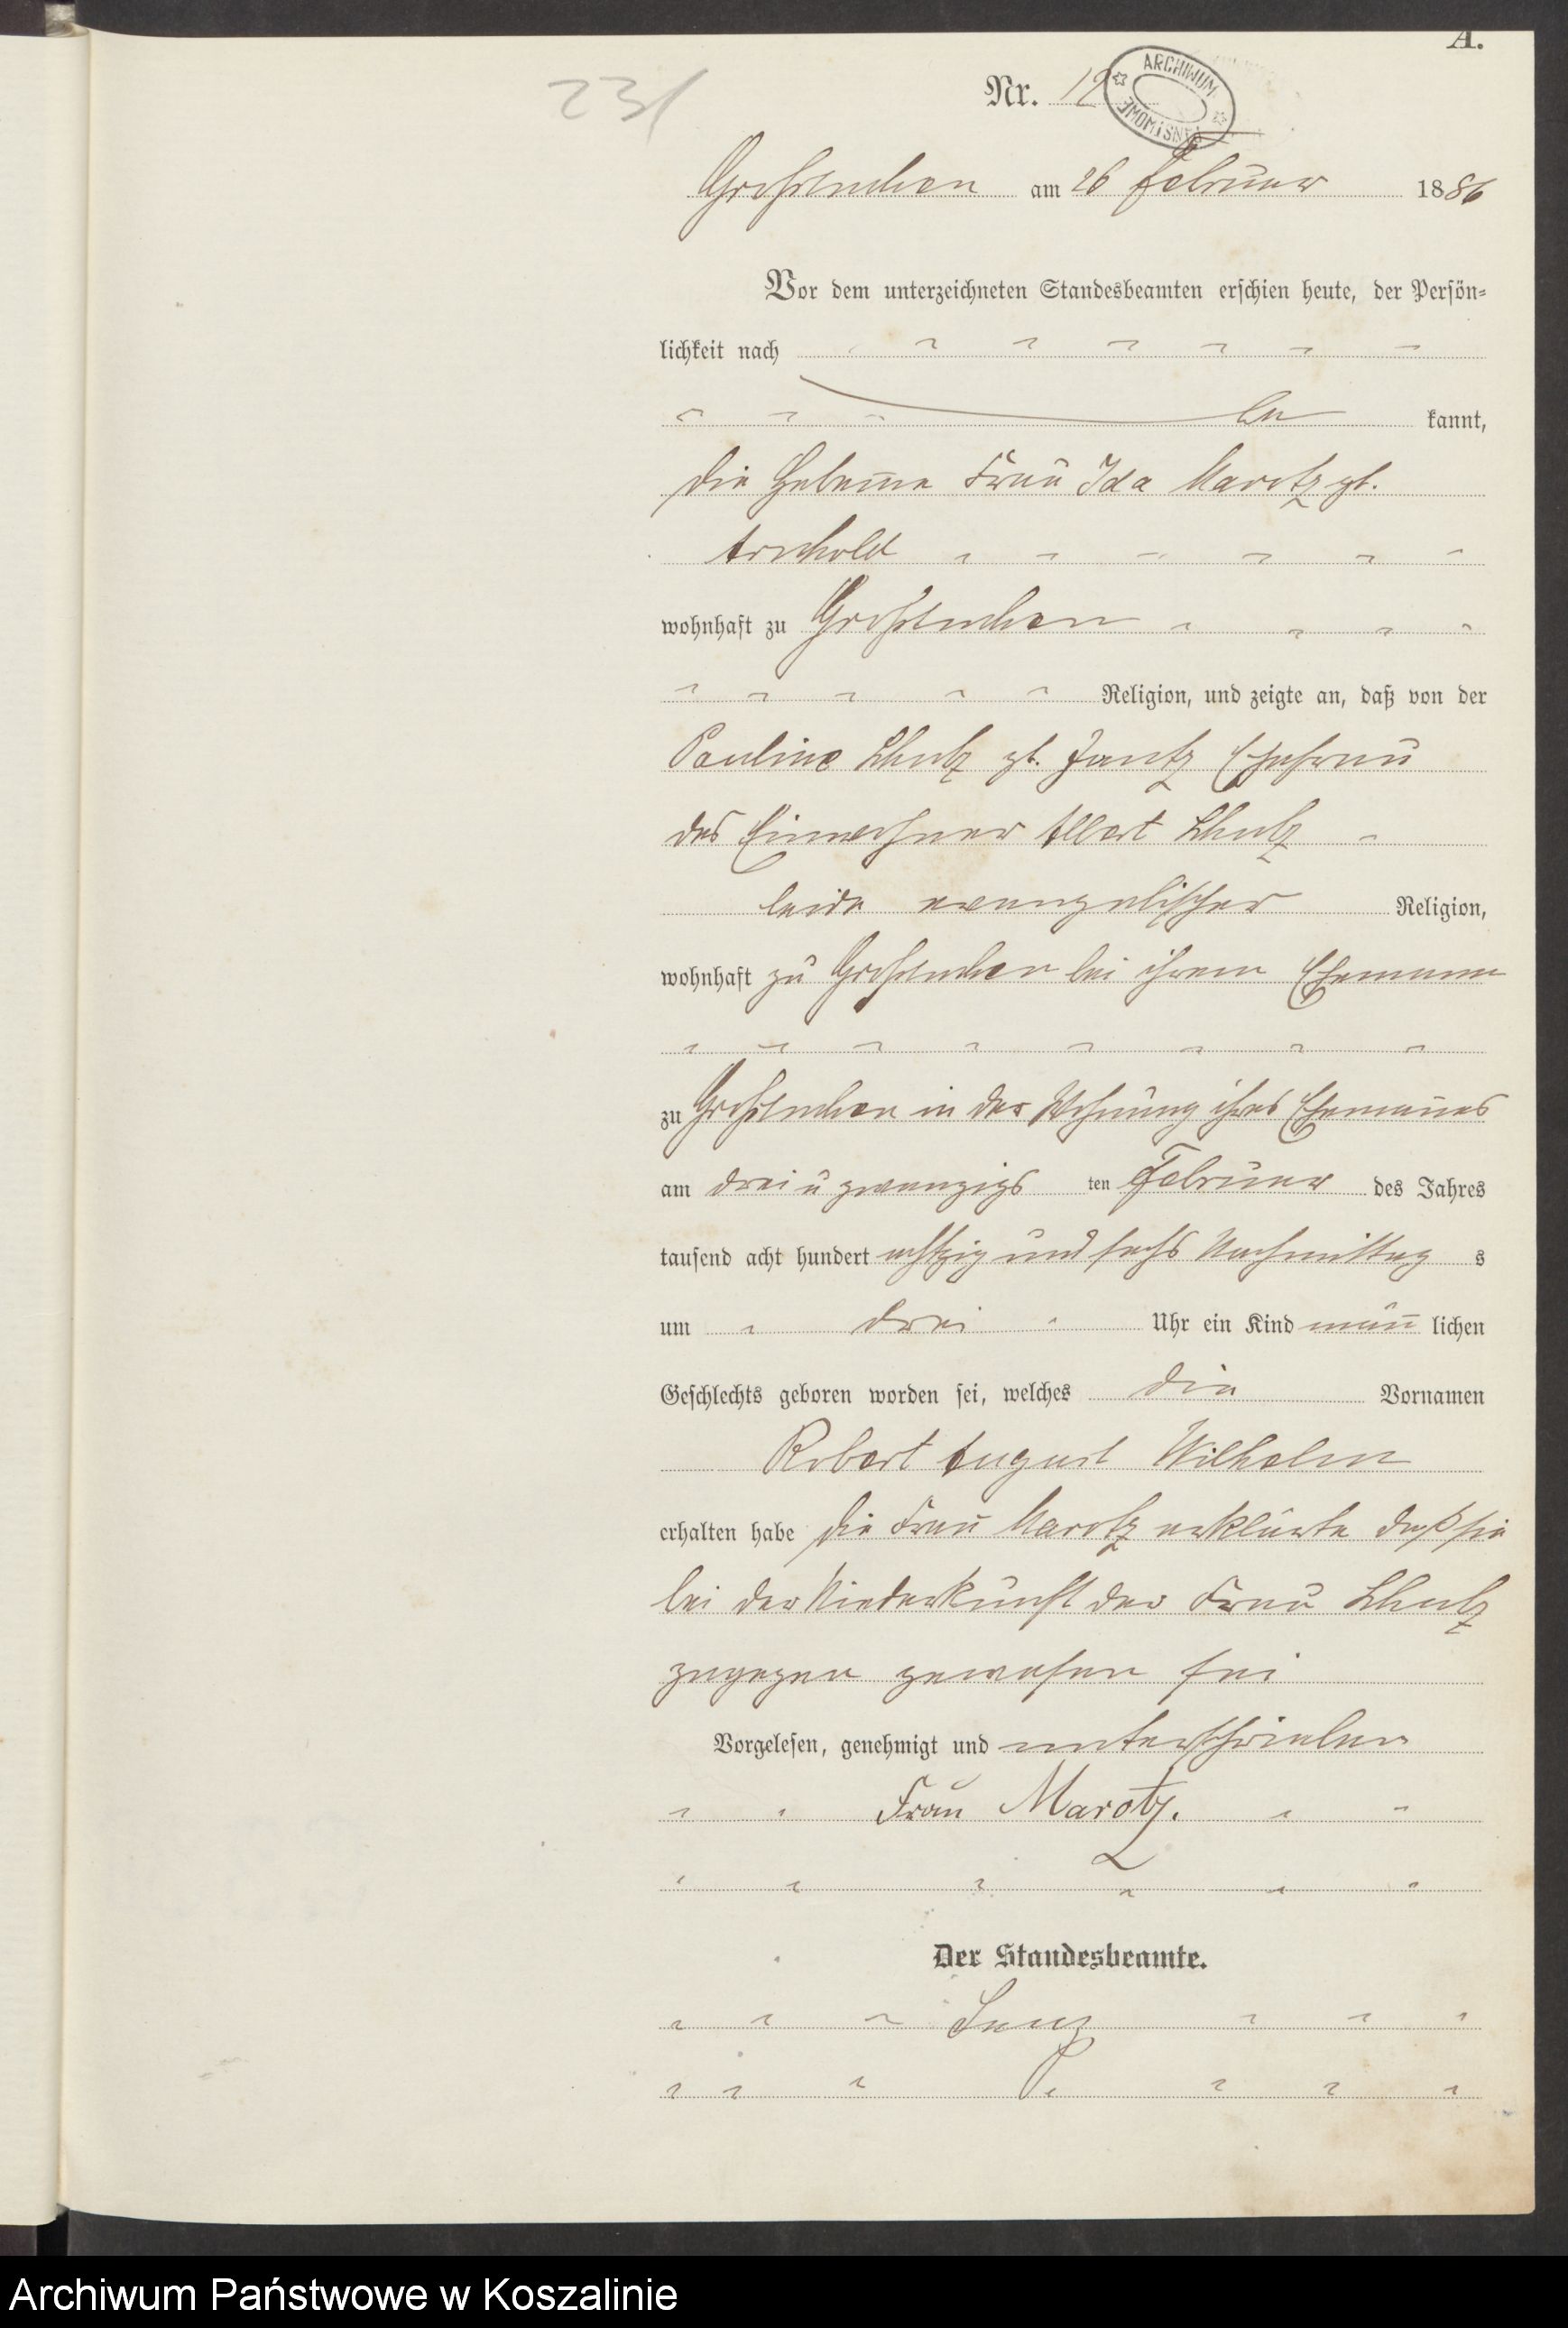 A.
231
Nr. 12
ARCHIWUM
PAŃSTWOWE
Großtuchen am 26 Februar 1886
Vor dem unterzeichneten Standesbeamten erschien heute, der Persön-
lichkeit nach
be kannt,
die Hebeam̅e Frau Ida Marotz gb.
wohnhaft zu Großtuchen
Religion, und zeigte an, daß von der
Pauline gb. Ehefrau
des Einwohner Albert
beide evangelischer Religion,
wohnhaft zu Großtuchen bei ihrem Ehemann
zu Großtuchen in der Wohnung ihres Eheman̅es
am drei u zwanzigs ten Februar des Jahres
tausend acht hundert achtzig und sechs Nachmittag s
um drei Uhr ein Kind män̅ lichen
Geschlechts geboren worden sei, welches die Vornamen
Robert August Wilhelm
erhalten habe die Frau Marotz erklärte daß sie
bei der Niederkunft der Frau
zugegen gewesen sei
Vorgelesen, genehmigt und unterschrieben
Frau Marotz.
Der Standesbeamte.
Archiwum Państwowe w Koszalinie